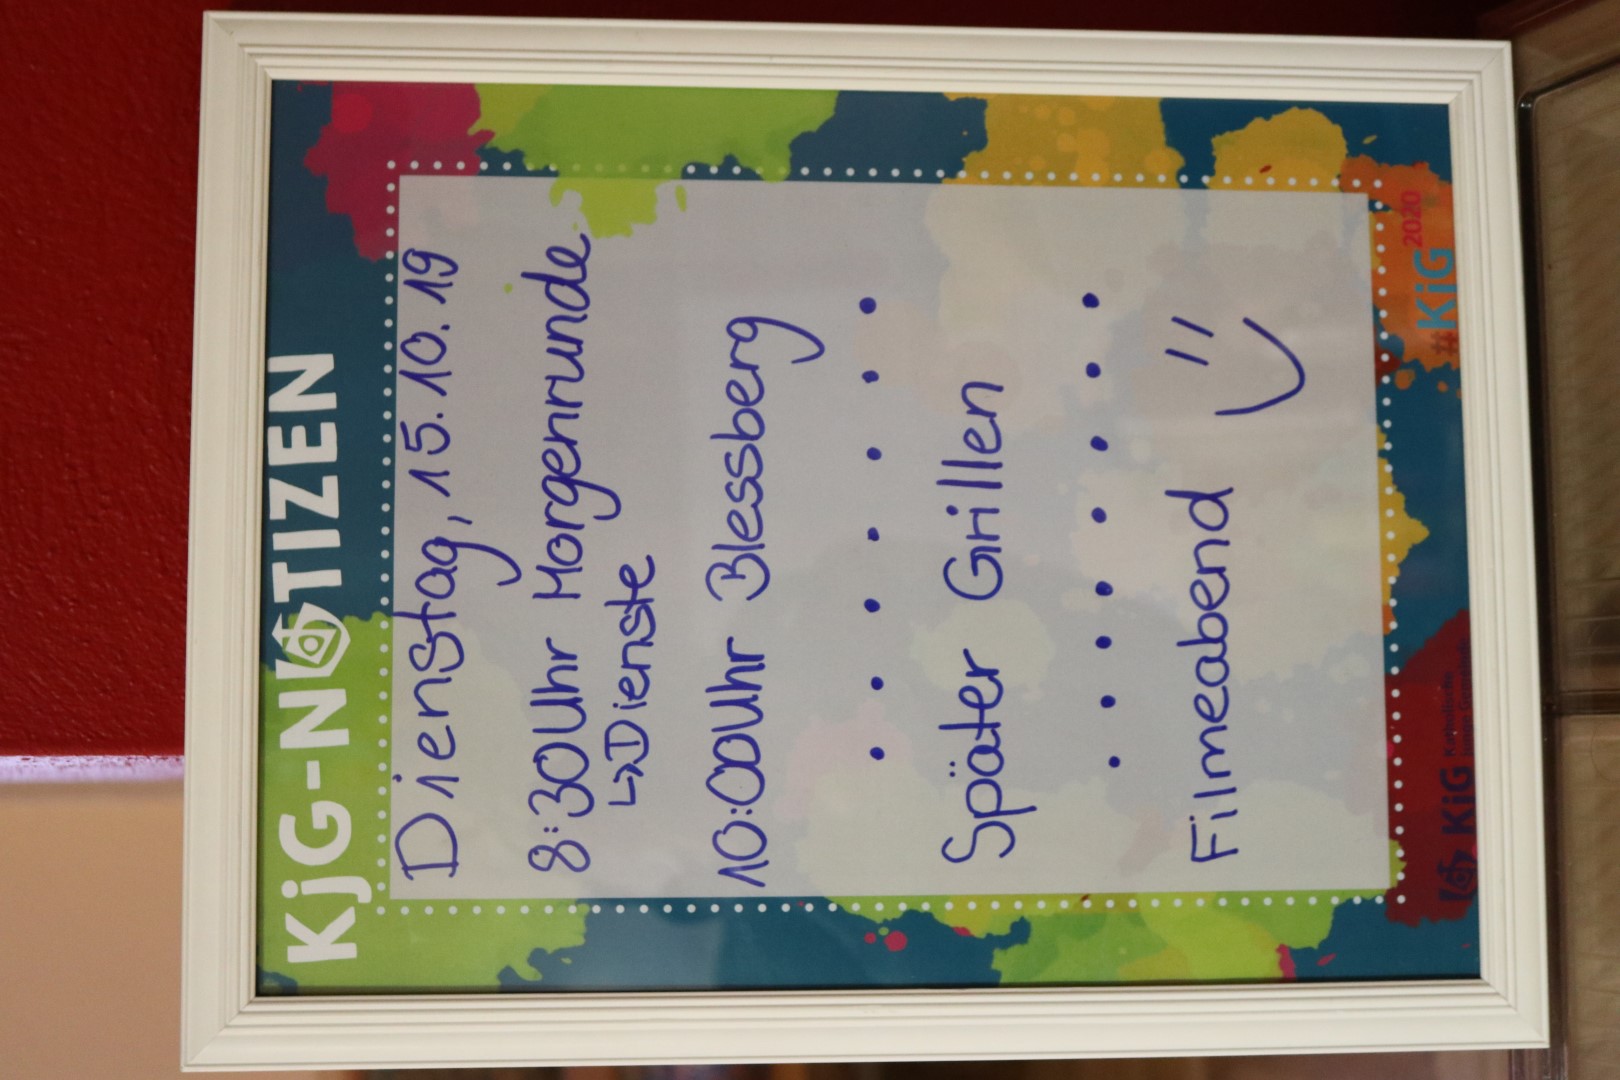 KjG-NOTIZEN
Dienstag, 15.10.19
8:30Uhr Morgenrunde
↳Dienste
10:00Uhr Blessberg
. . . . . . .
Später Grillen
. . . . . . . .
Filmeabend
KjG Katholische
junge Gemeinde
#KjG 2020